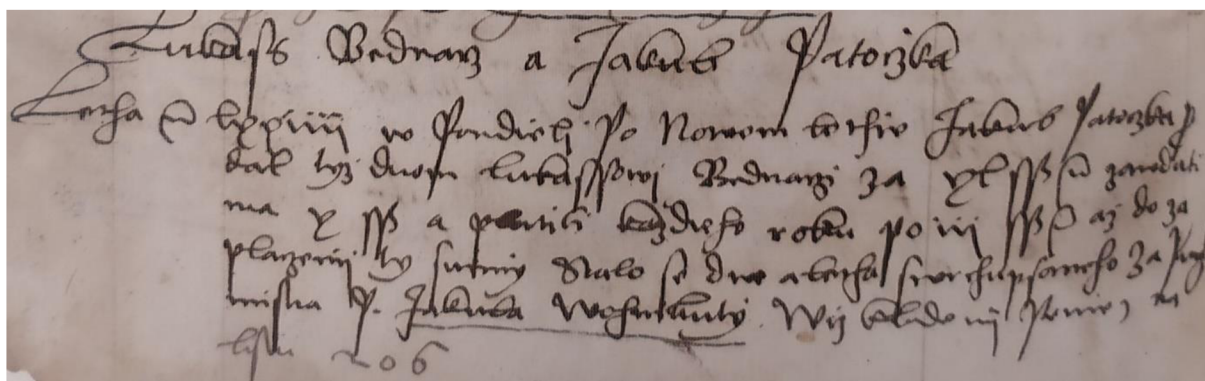 Lukass Bednarz a Jakub Patoczka
Letha lxxiiii w Pondieli po Nowem lethie Jakub Patoczka p
dal tyz duom Lukassowi Bednarzi za xl ss zawdati
ma x ss a platiti kazdieho roku po iii ss az do za
placzenij ty summy Stalo se dne a letha swrchupsaneho za Pur
mistra P. Jakuba Wij kladenij Peniez na
listu 206